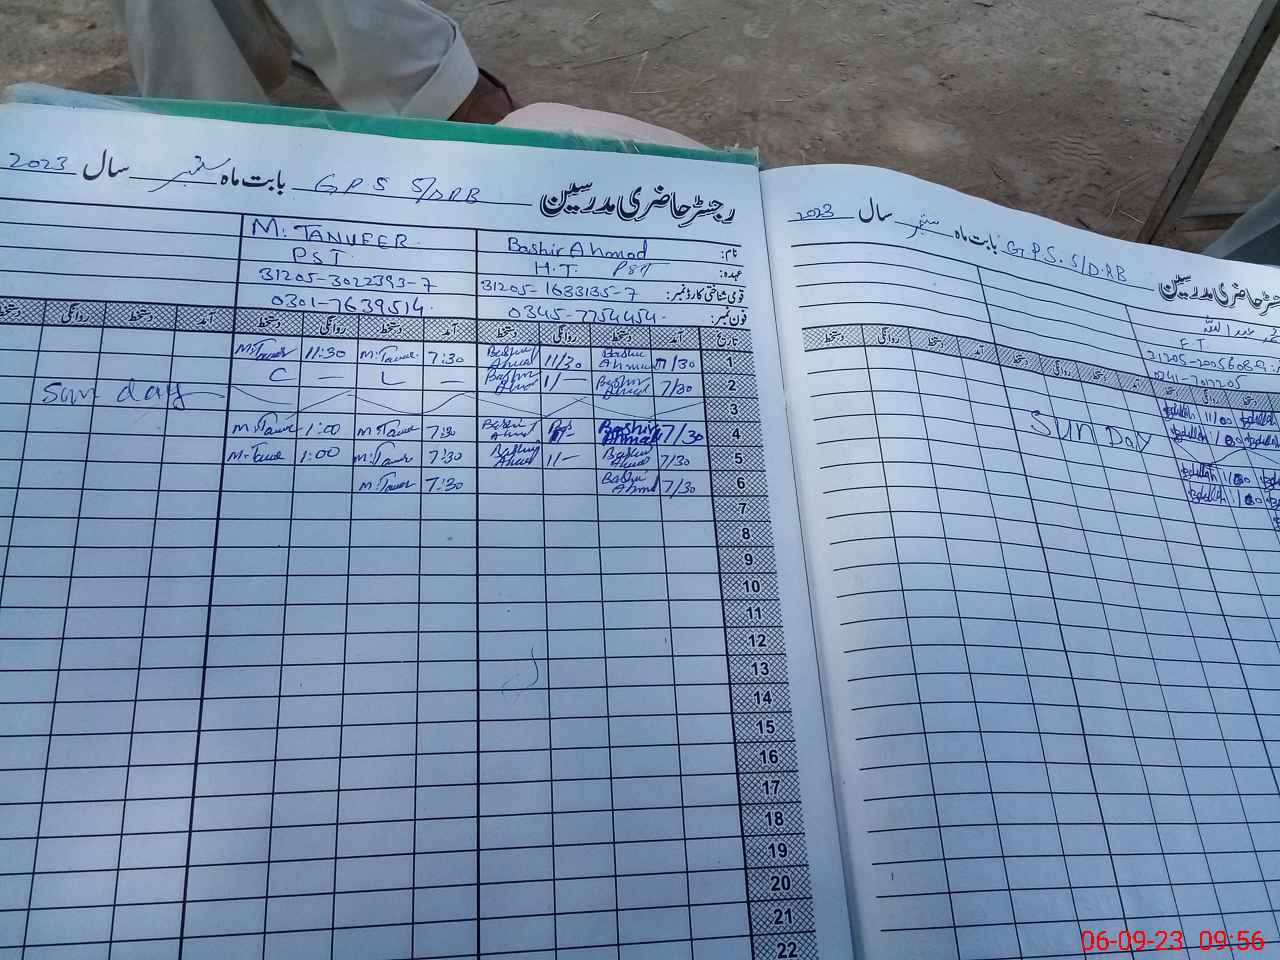 رجسٹر حاضری مدرسین G P S S/DRB بابت ماہ ستمبر سال 2023
نام: Bashir Ahmad M. TANVEER
عہدہ: H.T. PST PST
قومی شناختی کارڈ نمبر: 31205-1633135-7 31205-3022393-7
فون نمبر: 0345-7754454 0301-7639514
تاریخ آمد دستخط روانگی دستخط آمد دستخط روانگی دستخط آمد دستخط روانگی دستخط
1 7/30 Bashir Ahmad 11/30 Bashir Ahmad 7:30 M:Tanveer 11:30 M:Tanveer
2 7/30 Bashir Ahmad 11/— Bashir Ahmad — L — C
3 Sunday
4 7/30 Bashir Ahmad Bashir Ahmad 7:30 M:Tanveer 1:00 M:Tanveer
5 7/30 Bashir Ahmad 11/— Bashir Ahmad 7:30 M:Tanveer 1:00 M:Tanveer
6 7/30 Bashir Ahmad 7:30 M:Tanveer
7
8
9
10
11
12
13
14
15
16
17
18
19
20
21
22
رجسٹر حاضری مدرسین G.P.S. S/D.RB بابت ماہ ستمبر سال 2023
آمد دستخط روانگی دستخط آمد دستخط روانگی دستخط
SUNDAY
06-09-23 09:56